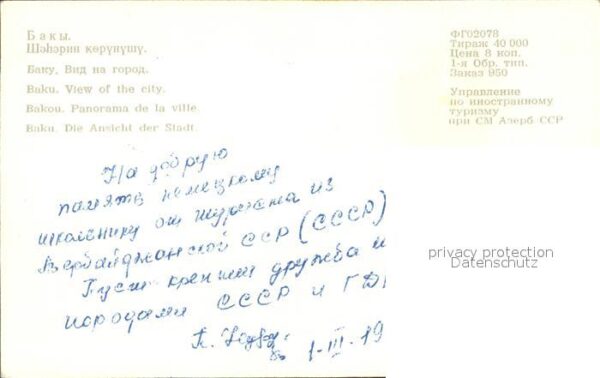 Бакы.
Шәһәрин көрүнүшү.
Баку. Вид на город.
Baku. View of the city.
Bakou. Panorama de la ville.
Baku. Die Ansicht der Stadt.
ФГ02078
Тираж 40 000
Цена 8 коп.
1-я Обр. тип.
Заказ 950
Управление
по иностранному
туризму
при СМ Азерб ССР
На добрую
память немецкому
школьнику от
Азербайджанской ССР (СССР)
Пусть крепнет дружба
народами СССР и ГД
1-III-19
privacy protection
Datenschutz